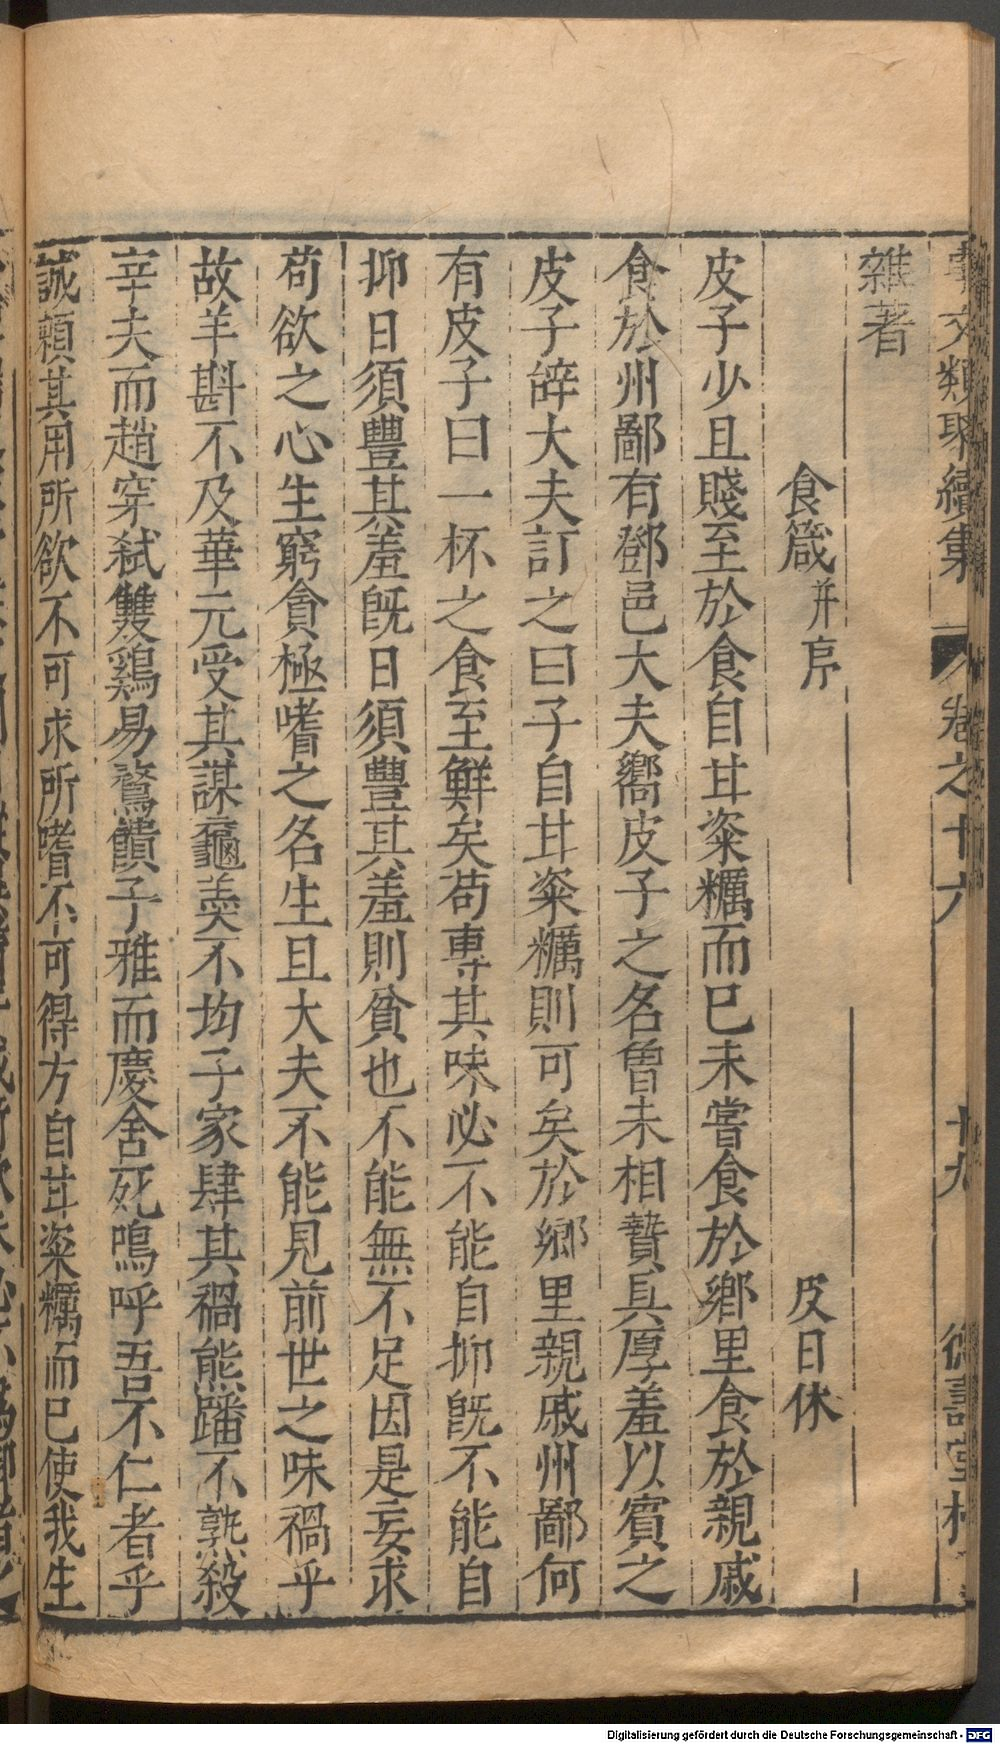 事文類聚續集 卷之十六 十九 德壽堂梓
雜著
食箴并序 皮日休
皮子少且賤至於食自甘粢糲而已未嘗食於鄉里食於親戚
食於州鄙有鄧邑大夫嚮皮子之名曾未相贄具厚羞以賓之
皮子辭大夫訂之曰子自甘粢糲則可矣於鄉里親戚州鄙何
有皮子曰一杯之食至鮮矣苟專其味必不能自抑既不能自
抑日須豐其羞既日須豐其羞則貧也不能無不足因是妄求
苟欲之心生窮貪極嗜之名生且大夫不能見前世之味禍乎
故羊斟不及華元受其謀黿羹不均子家肆其禍熊蹯不熟殺
宰夫而趙穿弒雙鷄易鶩饋子雅而慶舍死嗚呼吾不仁者乎
誠賴其用所欲不可求所嗜不可得方自甘粢糲而已使我生
Digitalisierung gefördert durch die Deutsche Forschungsgemeinschaft - DFG